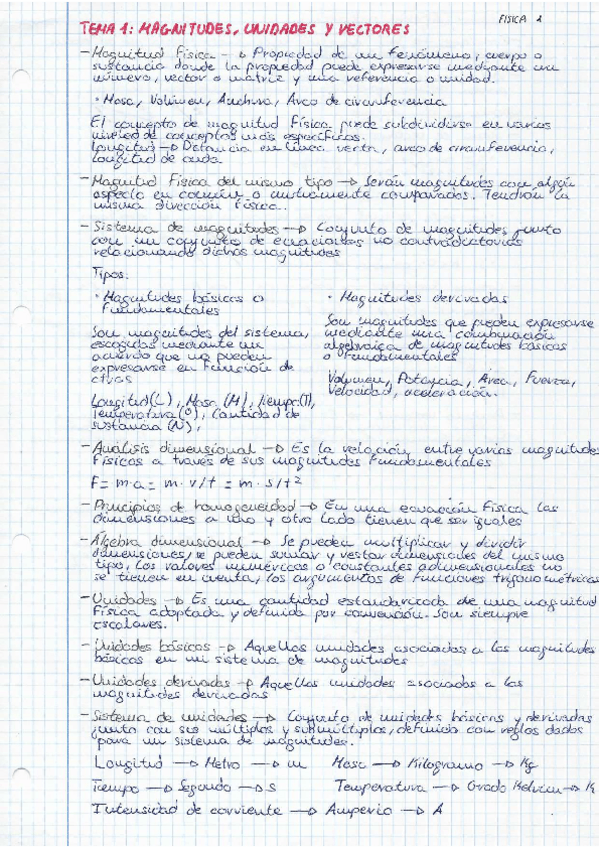 FÍSICA 1
TEMA 1: MAGNITUDES, UNIDADES Y VECTORES
- Magnitud Física → Propiedad de un fenómeno, cuerpo o
sustancia donde la propiedad puede expresarse mediante un
número, vector o matriz y una referencia o unidad.
• Masa, Volumen, Anchura, Arco de circunferencia
El concepto de magnitud física puede subdividirse en varios
niveles de conceptos más específicos.
Longitud → Distancia en línea recta, arco de circunferencia,
longitud de onda.
- Magnitud Física del mismo tipo → Serán magnitudes con algún
aspecto en común o mutuamente comparados. Tendrán la
misma dirección física.
- Sistema de magnitudes → Conjunto de magnitudes junto
con un conjunto de ecuaciones no contradictorias
relacionando dichas magnitudes
Tipos:
• Magnitudes básicas o
Fundamentales
Son magnitudes del sistema,
escogidas mediante un
acuerdo que no pueden
expresarse en función de
otras
Longitud (L), Masa (M), tiempo (T),
Temperatura (θ), Cantidad de
sustancia (N),
• Magnitudes derivadas
Son magnitudes que pueden expresarse
mediante una combinación
algebraica de magnitudes básicas
o fundamentales
Volumen, Potencia, Área, Fuerza,
Velocidad, aceleración.
- Análisis dimensional → Es la relación entre varias magnitudes
físicas a través de sus magnitudes fundamentales
F = m·a = m·v/t = m·s/t²
- Principios de homogeneidad → En una ecuación física las
dimensiones a uno y otro lado tienen que ser iguales
- Álgebra dimensional → Se pueden multiplicar y dividir
dimensiones, se pueden sumar y restar dimensiones del mismo
tipo, Los valores numéricos o constantes adimensionales no
se tienen en cuenta, los argumentos de funciones trigonométricas
- Unidades → Es una cantidad estandarizada de una magnitud
física adoptada y definida por convención. Son siempre
escalares.
- Unidades básicas → Aquellas unidades asociadas a las magnitudes
básicas en un sistema de magnitudes
- Unidades derivadas → Aquellas unidades asociadas a las
magnitudes derivadas
- Sistema de unidades → Conjunto de unidades básicas y derivadas
junto con sus múltiplos y submúltiplos, definida con reglas dadas
para un sistema de magnitudes.
Longitud → Metro → m Masa → Kilogramo → Kg
Tiempo → Segundo → s Temperatura → Grado Kelvin → K
Intensidad de corriente → Amperio → A